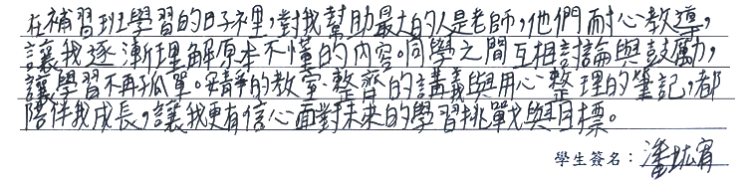 在補習班學習的日子裡，對我幫助最大的人是老師，他們耐心教導，
讓我逐漸理解原本不懂的內容。同學之間互相討論與鼓勵，
讓學習不再孤單。安靜的教室、整齊的講義與用心整理的筆記，都
陪伴我成長，讓我更有信心面對未來的學習挑戰與目標。
學生簽名：潘